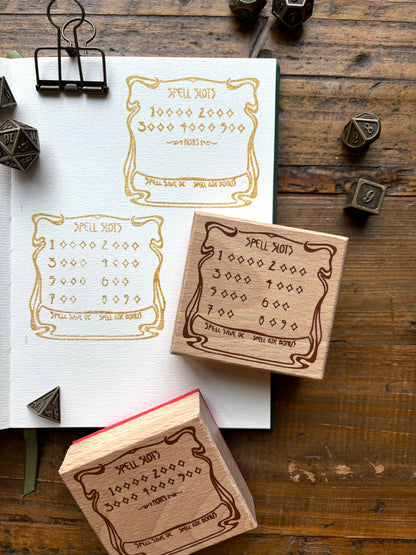 SPELL SLOTS
1 2
3 4 5
NOTES
SPELL SAVE DC SPELL ATK BONUS
SPELL SLOTS
1 2
3 4
5 6
7 8 9
SPELL SAVE DC SPELL ATK BONUS
SPELL SLOTS
1 2
3 4
5 6
7 8 9
SPELL SAVE DC SPELL ATK BONUS
SPELL SLOTS
1 2
3 4 5
NOTES
SPELL SAVE DC SPELL ATK BONUS